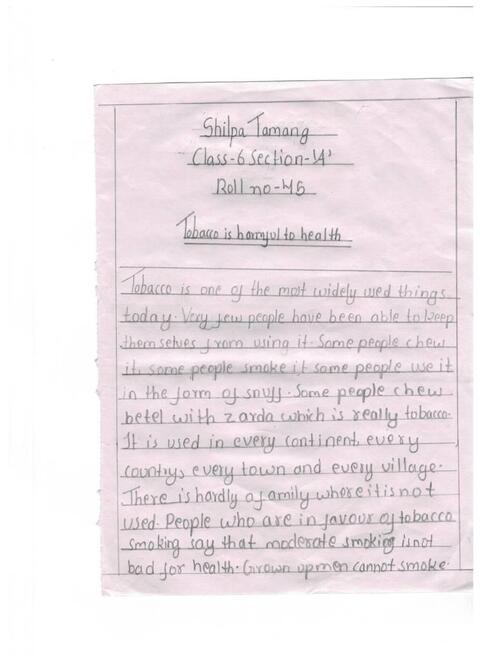 Shilpa Tamang
Class-6 Section-'A'
Roll no-45
Tobacco is harmful to health
Tobacco is one of the most widely used things
today. Very few people have been able to keep
themselves from using it. Some people chew
it, some people smoke it some people use it
in the form of snuff. Some people chew
betel with zarda which is really tobacco.
It is used in every continent, every
country, every town and every village.
There is hardly a family where it is not
used. People who are in favour of tobacco
smoking say that moderate smoking is not
bad for health. Grown up men cannot smoke.